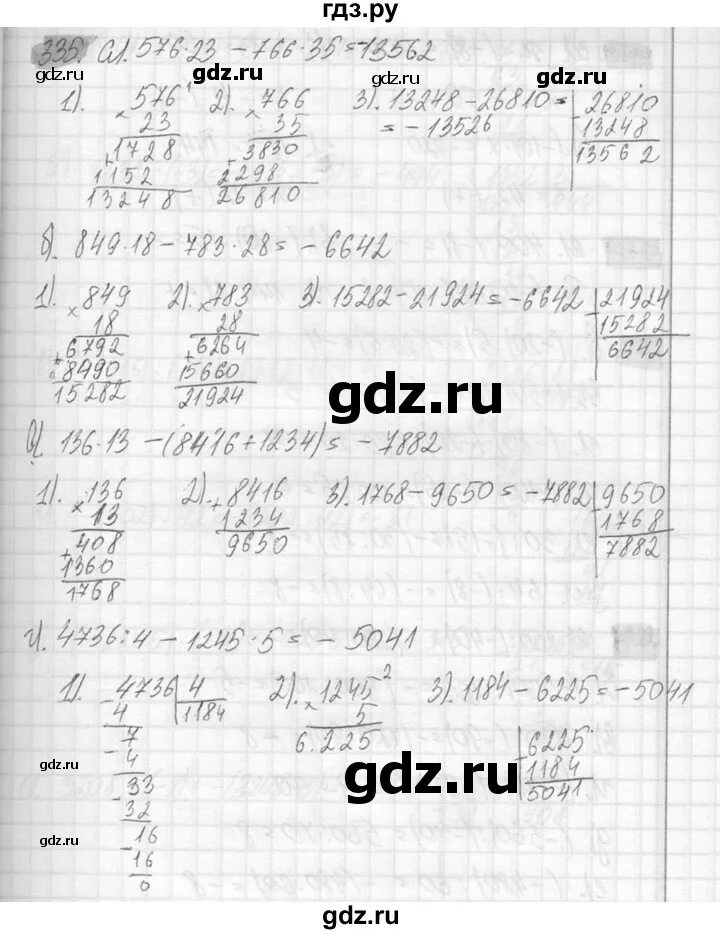 гдз.ру
335. а). 576·23 - 766·35 = -13562
1). 576 2). 766 3). 13248 - 26810 = 26810
× 23 × 35 = -13526 13248
1728 3830 13562
+ 1152 + 2298
13248 26810
б). 849·18 - 783·28 = -6642
1). 849 2). 783 3). 15282 - 21924 = -6642 21924
× 18 × 28 - 15282
+ 6792 + 6264 6642
8490 15660
15282 21924
gdz.ru
в). 136·13 - (8416 + 1234) = -7882
1). 136 2). 8416 3). 1768 - 9650 = -7882 9650
× 13 + 1234 - 1768
+ 408 9650 7882
1360
1768
gdz.ru
г). 4736:4 - 1245·5 = -5041
1). 4736 4 2). 1245² 3). 1184 - 6225 = -5041
- 4 1184 × 5
7 6.225 6225
- 4 - 1184
33 5041
- 32
16
- 16
0
gdz.ru
gdz.ru
gdz.ru
gdz.ru
gdz.ru